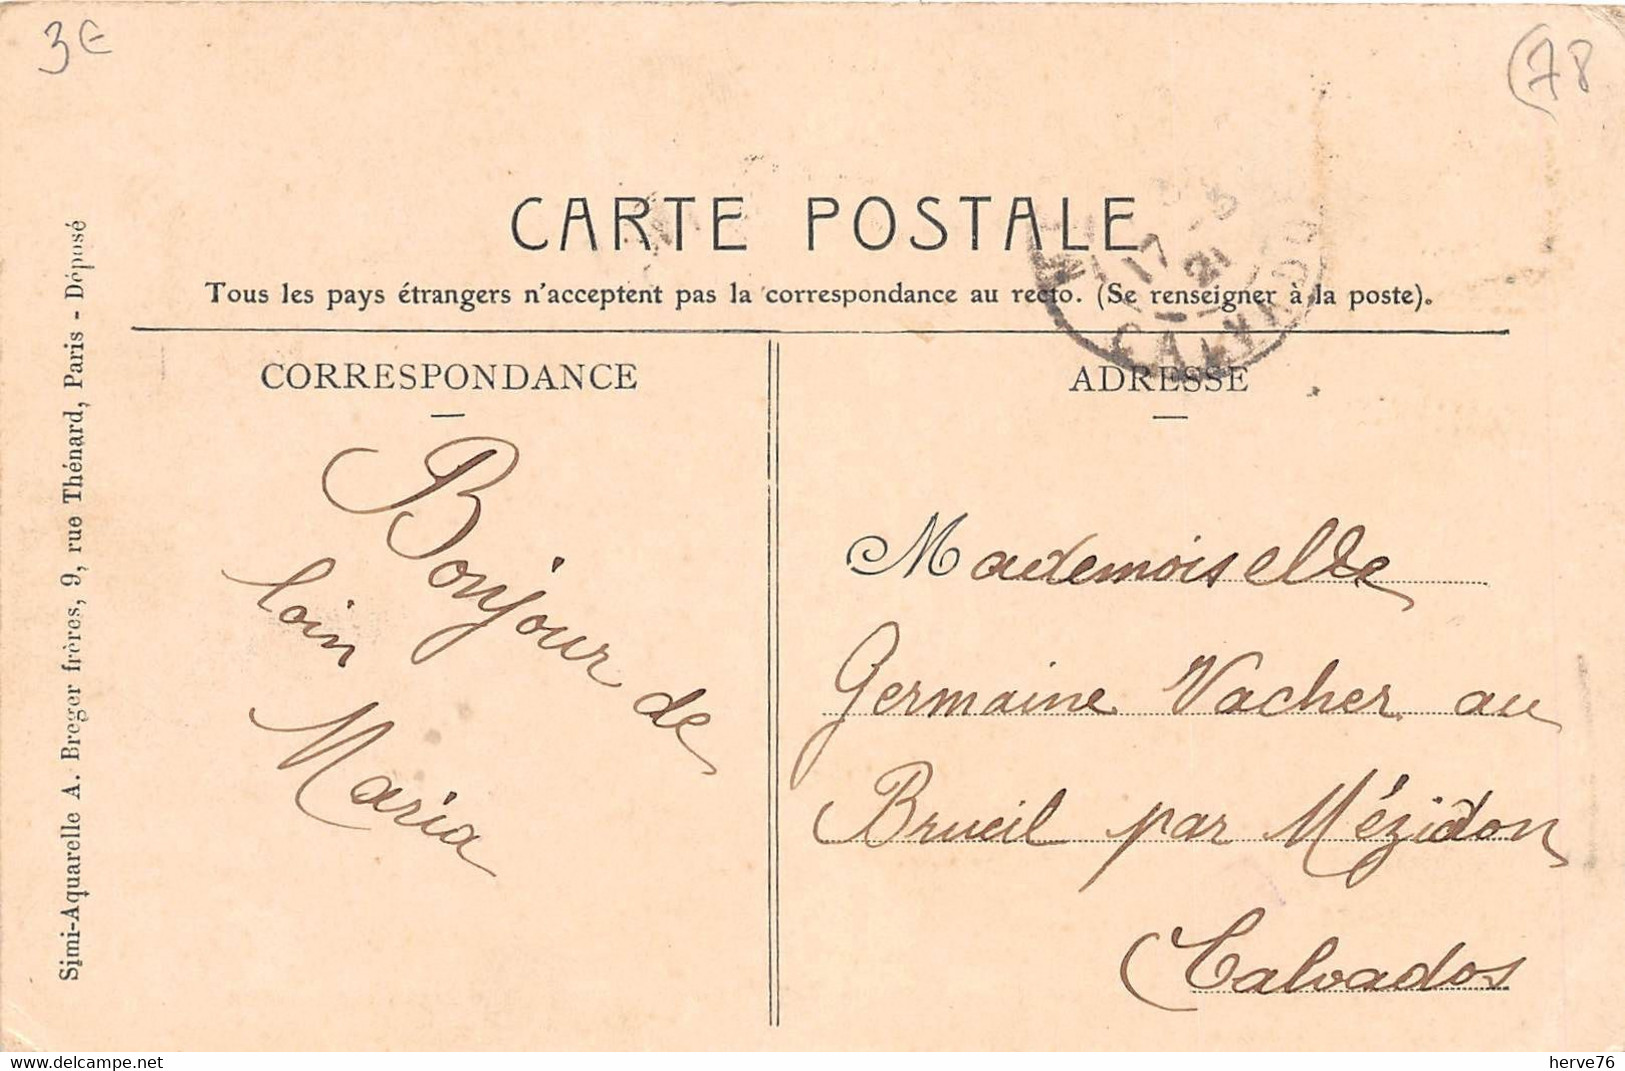 3€
(78
CARTE POSTALE
Tous les pays étrangers n'acceptent pas la correspondance au recto. (Se renseigner à la poste).
17 - 3
21
CALVADOS
CORRESPONDANCE
ADRESSE
Bonjour de
loin
Maria
Mademoiselle
Germaine Vacher au
Brueil par Mézidon
Calvados
Simi-Aquarelle A. Breger frères, 9, rue Thénard, Paris - Déposé
https://www.delcampe.net
herve76